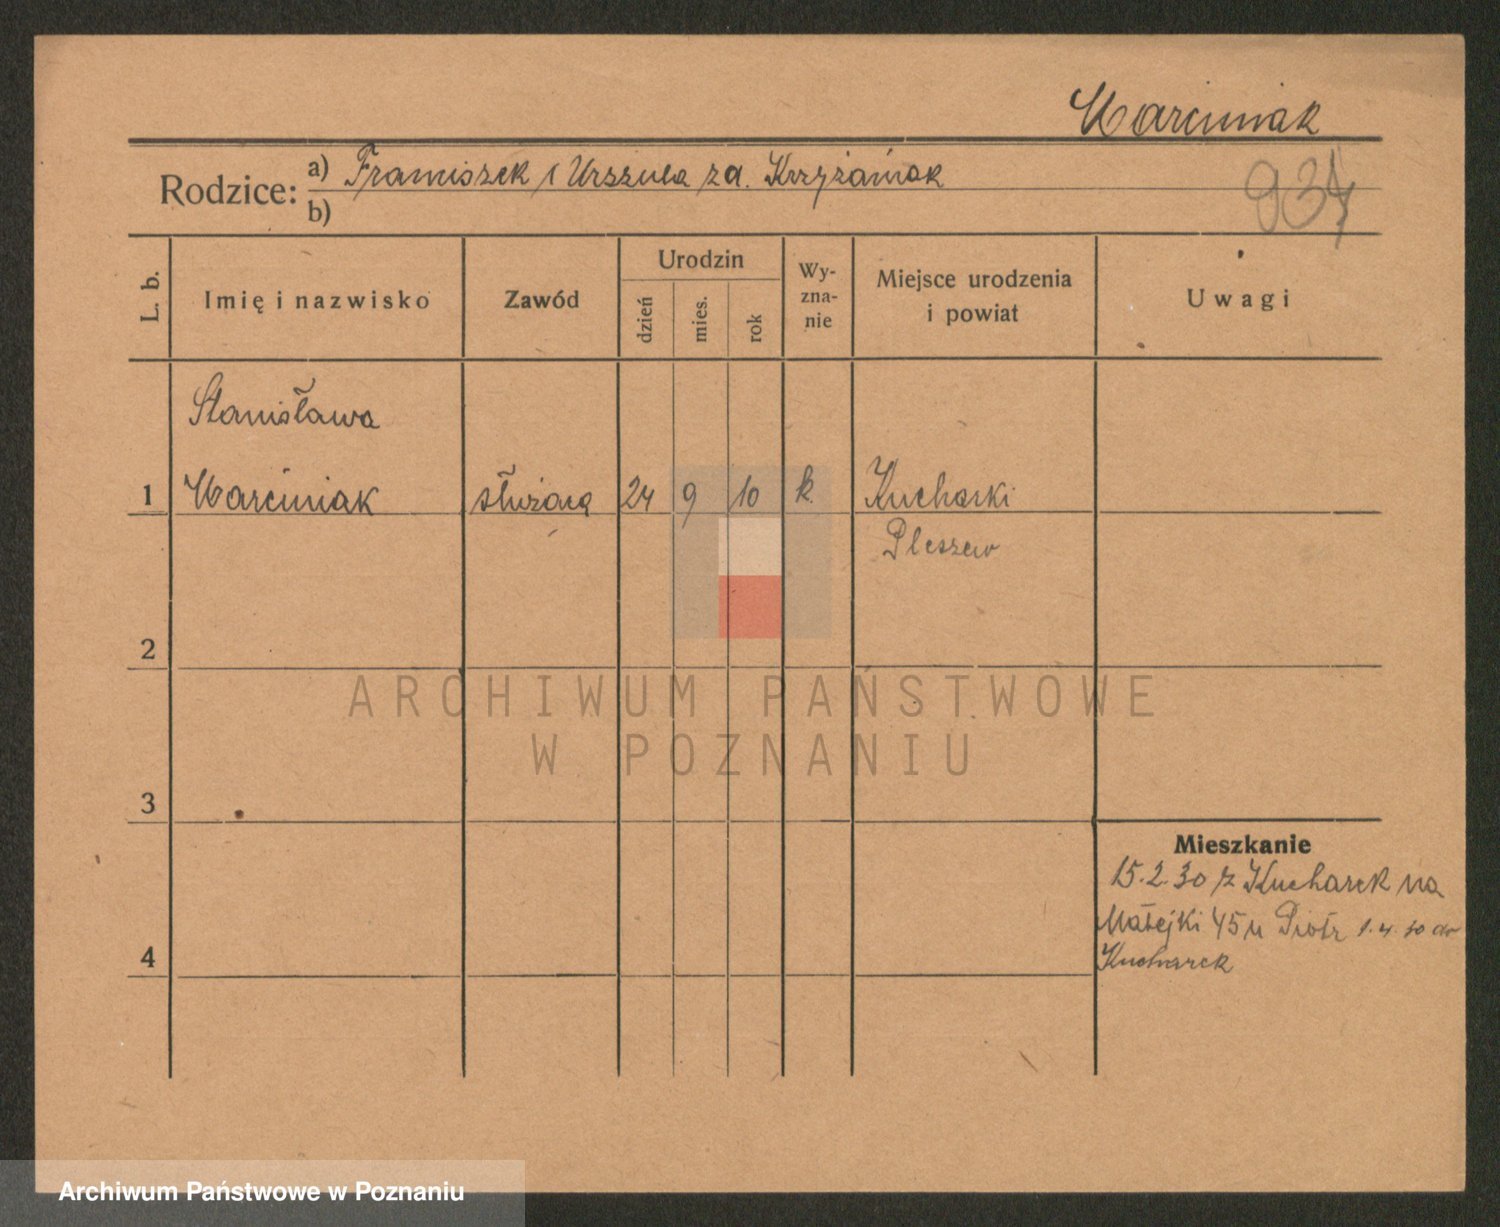 Marciniak
Rodzice: a) Franciszek i Urszula z d. Krzyżaniak
b)
934
L. b.
Imię i nazwisko
Zawód
Urodzin
dzień
mies.
rok
Wy-
zna-
nie
Miejsce urodzenia
i powiat
Uwagi
Stanisława
1 Marciniak służąca 24 9 10 k. Kucharki
Pleszew
2
3
4
Mieszkanie
15.2.30 z Kucharek na
Matejki 45 u Piotr 1.4.30 do
Kucharek
ARCHIWUM PAŃSTWOWE
W POZNANIU
Archiwum Państwowe w Poznaniu